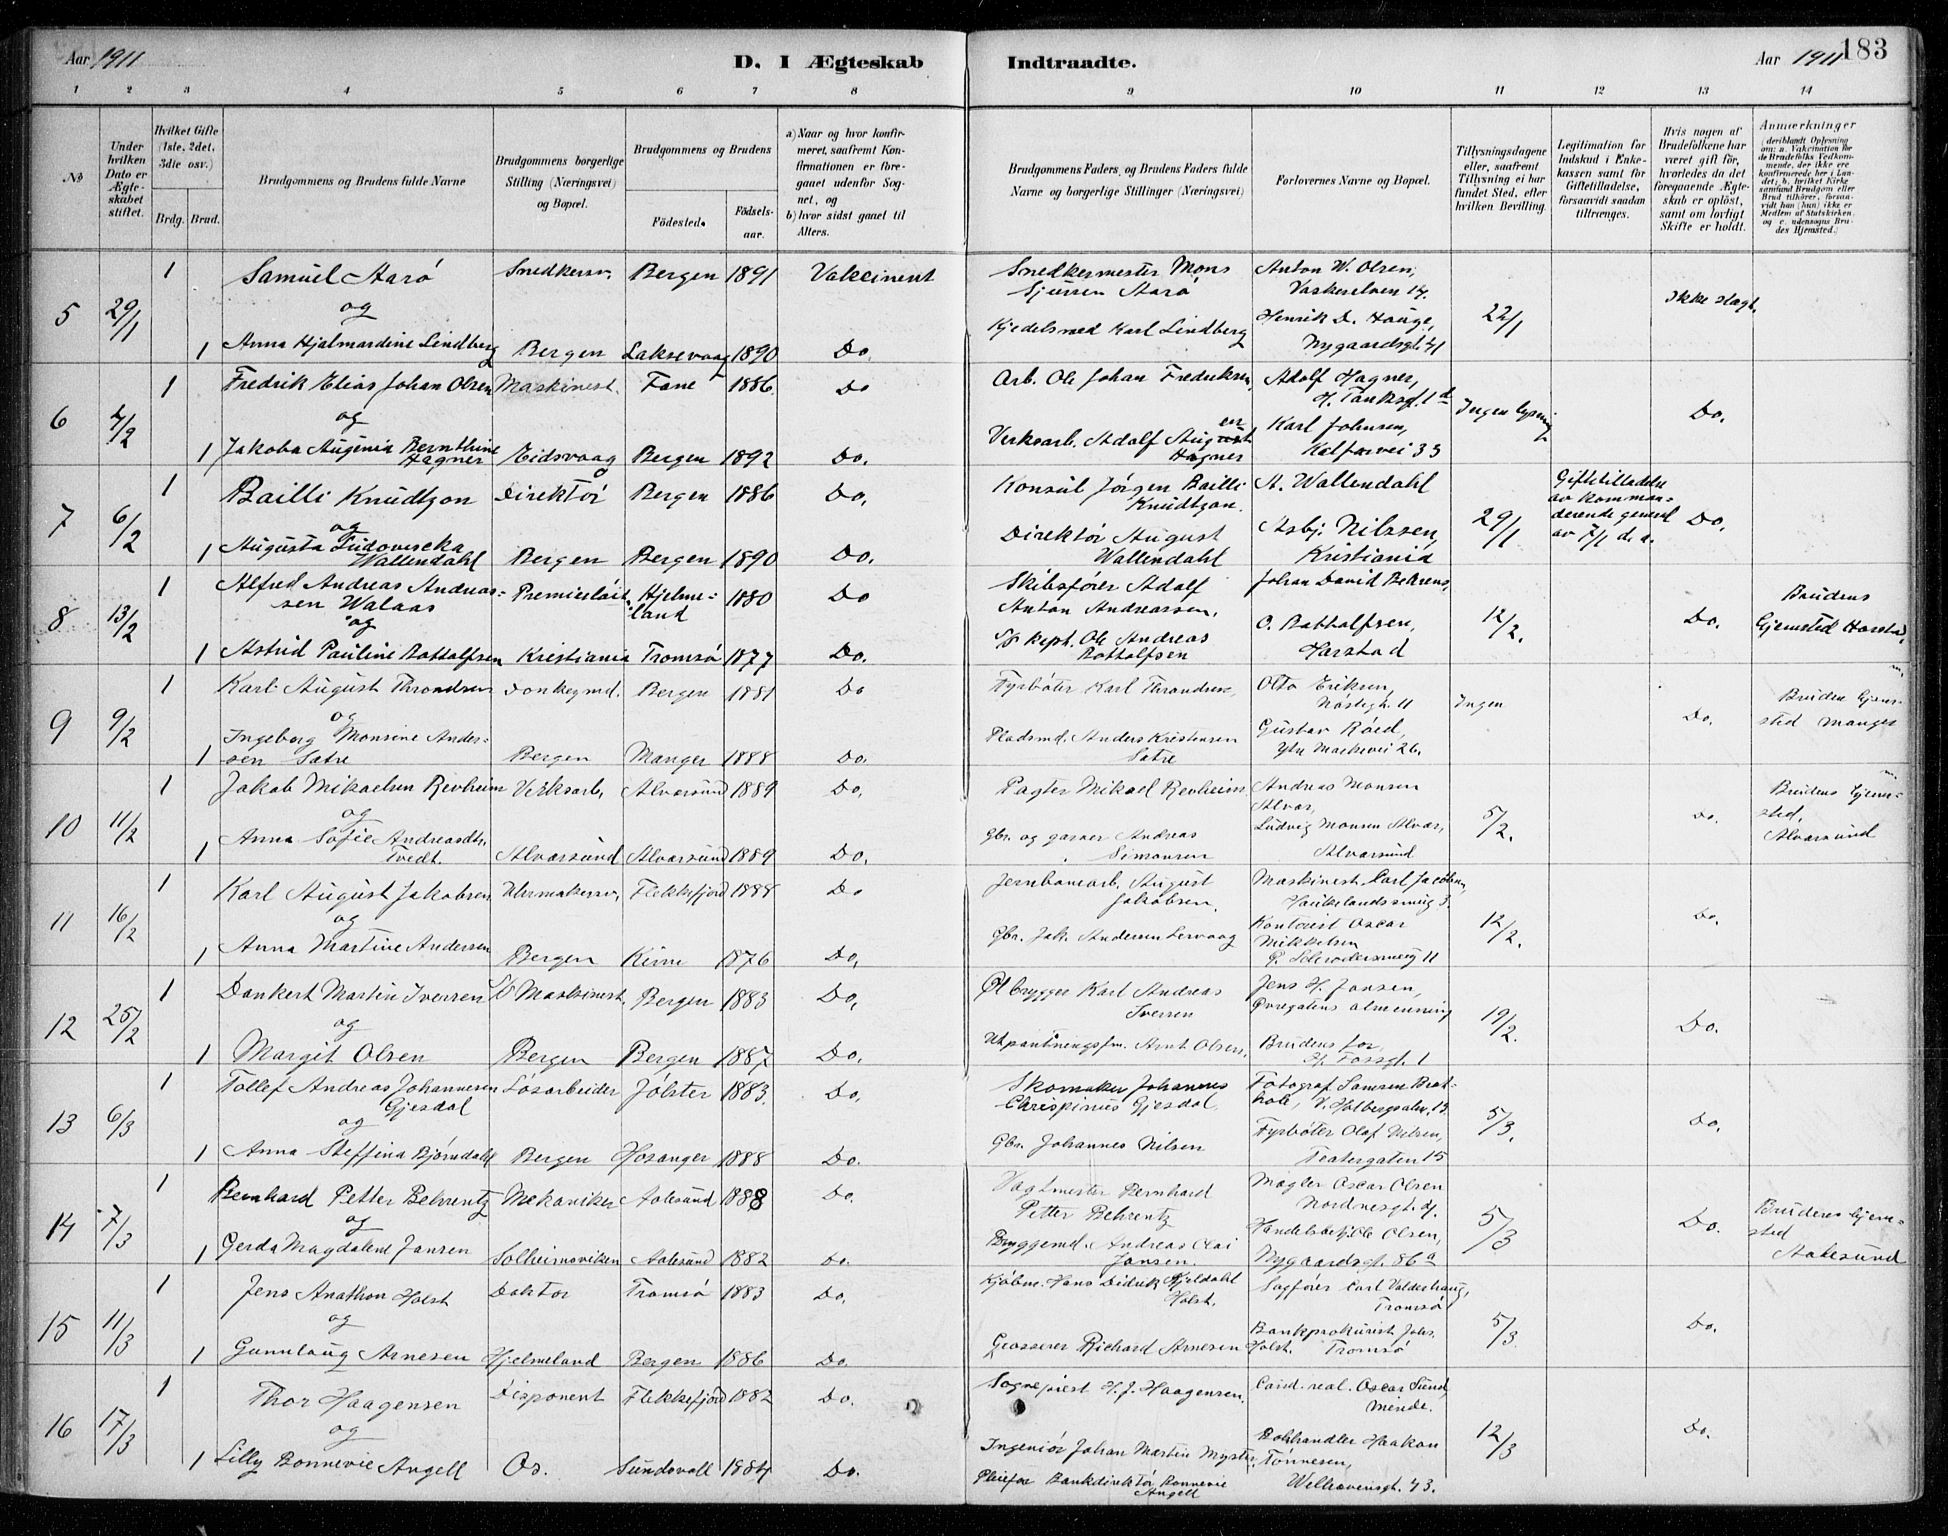 Aar 1911 D. I Ægteskab Indtraadte. Aar 1911 183
1 2 3 4 5 6 7 8 9 10 11 12 13 14
№
Under hvilken Dato er Ægteskabet stiftet.
Hvilket Gifte (1ste, 2det, 3die osv.)
Brdg. Brud.
Brudgommens og Brudens fulde Navne
Brudgommens borgerlige Stilling (Næringsvei) og Bopæl.
Brudgommens og Brudens
Fødested.
Fødselsaar.
a) Naar og hvor konfirmeret, saafremt Konfirmationen er foregaaet udenfor Sognet, og
b) hvor sidst gaaet til Alters.
Brudgommens Faders, og Brudens Faders fulde Navne og borgerlige Stillinger (Næringsvei)
Forlovernes Navne og Bopæl.
Tillysningsdagene eller, saafremt Tillysning ei har fundet Sted, efter hvilken Bevilling.
Legitimation for Indskud i Enkekassen samt for Giftetilladelse, forsaavidt saadan tiltrænges.
Hvis nogen af Brudefolkene har været gift før, hvorledes da det foregaaende Ægteskab er opløst, samt om lovligt Skifte er holdt.
Anmærkninger
(deriblandt Oplysning om: a. Vakcination for de Brudefolks Vedkommende, der ikke ere konfirmerede her i Landet; b. hvilket Kirkesamfund Brudgom eller Brud tilhører, forsaavidt han (hun) ikke er Medlem af Statskirken, og c. udensogns Brudes Hjemsted.)
5 29/1 1 Samuel Aarø Snedkersv. Bergen 1891 Vakcinent Snedkermester Mons Sjursen Aarø Anton W. Olsen, 22/1 Ikke slægt.
og
1 Anna Hjalmardine Lindberg Bergen Laksevaag 1890 Do. Kjedelsmed Karl Lindberg Henrik D. Hauge, Nygaardsgt. 41
6 4/2 1 Fredrik Elias Johan Olsen Maskinest. Fane 1886 Do Arb. Ole Johan Fredriksen, Adolf Hagner, Ingen lysning Do.
og
1 Jakoba Augenia Bernthine Hagner Eidsvaag Bergen 1892 Do. Verksarb. Adolf August Hagner Karl Johnsen, Kalfarvei 33
7 6/2 1 Bailli Knudtzon Direktør Bergen 1886 Do. Konsul Jørgen Bailli Knudtzon. A. Wallendahl 29/1 Giftetilladelse av kommanderende general av 7/1 d. a. Do.
og
1 Augusta Ludovicka Wallendahl Bergen Bergen 1890 Do. Direktør August Wallendahl Asbj. Nilssen, Kristiania
8 13/2 1 Alfred Andreas Andreassen Walaas Premierløit. Hjelmeland 1880 Do Skibsfører Adolf Anton Andreassen. Johan David Behrens, 12/2. Do. Brudens Hjemsted Harstad.
og
1 Astrid Pauline Rottalfsen Kristiania Tromsø 1877 Do. Sk. kapt. Ole Andreas Rottolfsen O. Rottolfsen, Harstad
9 9/2 1 Karl August Throndsen Bergen 1881 Do Fyrbøter Karl Throndsen, Olto Eriksen, Nøstegt. 11 Ingen Do. Brudens hjemsted Manger
og
1 Ingeborg Monsine Andersen Sætre Bergen Manger 1888 Do. Pladsmd. Anders Kristensen Sætre Gustav Røed, Ytre Markevei 26.
10 11/2 1 Jakob Mikaelsen Revheim Verksarb. Alversund 1889 Do. Pagter Mikael Revheim Andreas Monsen Alver, 5/2. Do. Brudens hjemsted, Alversund
og
1 Anna Sofie Andreasdtr. Tvedt. Alversund Alversund 1889 Do. Gbr. og garver Andreas Simonsen Ludvig Monsen Alver, Alversund
11 16/2 1 Karl August Jakobsen Uhrmakersv. Flekkefjord 1888 Do Jernbanearb. August Jakobsen. Maskinest. Carl Jacobsen, Haukelandssmug 3. 12/2. Do.
og
1 Anna Martine Andersen Bergen Kinn 1876 Do. Gbr. Jak. Andersen Lervaag Kontorist Oscar Mikkelsen 11
12 25/2 1 Dankert Martin Iversen Maskinest. Bergen 1883 Do. Ølbrygger Karl Andreas Iversen Jens H. Jansen, Øvregatens almenning 19/2. Do.
og
1 Margit Olsen Bergen Bergen 1887 Do. Utpantningsfm. Arnt Olsen, Brudens far, H. Fossgt. 1
13 6/3 1 Tollef Andreas Johannesen Gjesdal Løsarbeider Jølster 1883. Do. Skomaker Johannes Chrispinus Gjesdal, Fotograf Samson Brathole, V. Holbergsalm. 15 5/3. Do.
og
1 Anna Steffina Bjørndahl Bergen Hosanger 1888 Do. Gbr. Johannes Nilsen Fyrbøter Olaf Nilsen, Teatergaten 15
14 7/3 1 Bernhard Petter Behrentz Mekaniker Aalesund 1888 Do. Vagtmester Bernhard Petter Behrentz Mægler Oscar Olsen Nordnesgt. 5/3 Do. Brudens hjemsted Aalesund
og
1 Gerda Magdalene Jansen Solheimsviken Aalesund 1882 Do. Byggemd. Andreas Olai Jansen. Handelsbetj. Ole Olsen, Nygaardsgt. 86a
15 11/3 1 Jens Anathon Holst Doktor Tromsø 1883 Do. Kjøbm. Hans Didrik Kjeldahl Holst. Sagfører Carl Valderhaug, Tromsø 5/3 Do.
og
1 Gunnlaug Arnesen Hjelmeland Bergen 1886 Do. Grosserer Richard Arnesen Bankprokurist Johs. Holst. Tromsø
16 17/3 1 Thor Haagensen Disponent Flekkefjord 1882 Do. Sogneprest H. J. Haagensen. Cand. real. Oscar Sund Minde. 12/3 Do.
og
1 Lilly Bonnevie Angell Os. Sundsvall 1884 Do. Ingeniør Johan Martin Myster Pleiefar Bankdirektør Bonnevie Angell Bokhandler Haakon Tønnesen, Welhavensgt. 73.